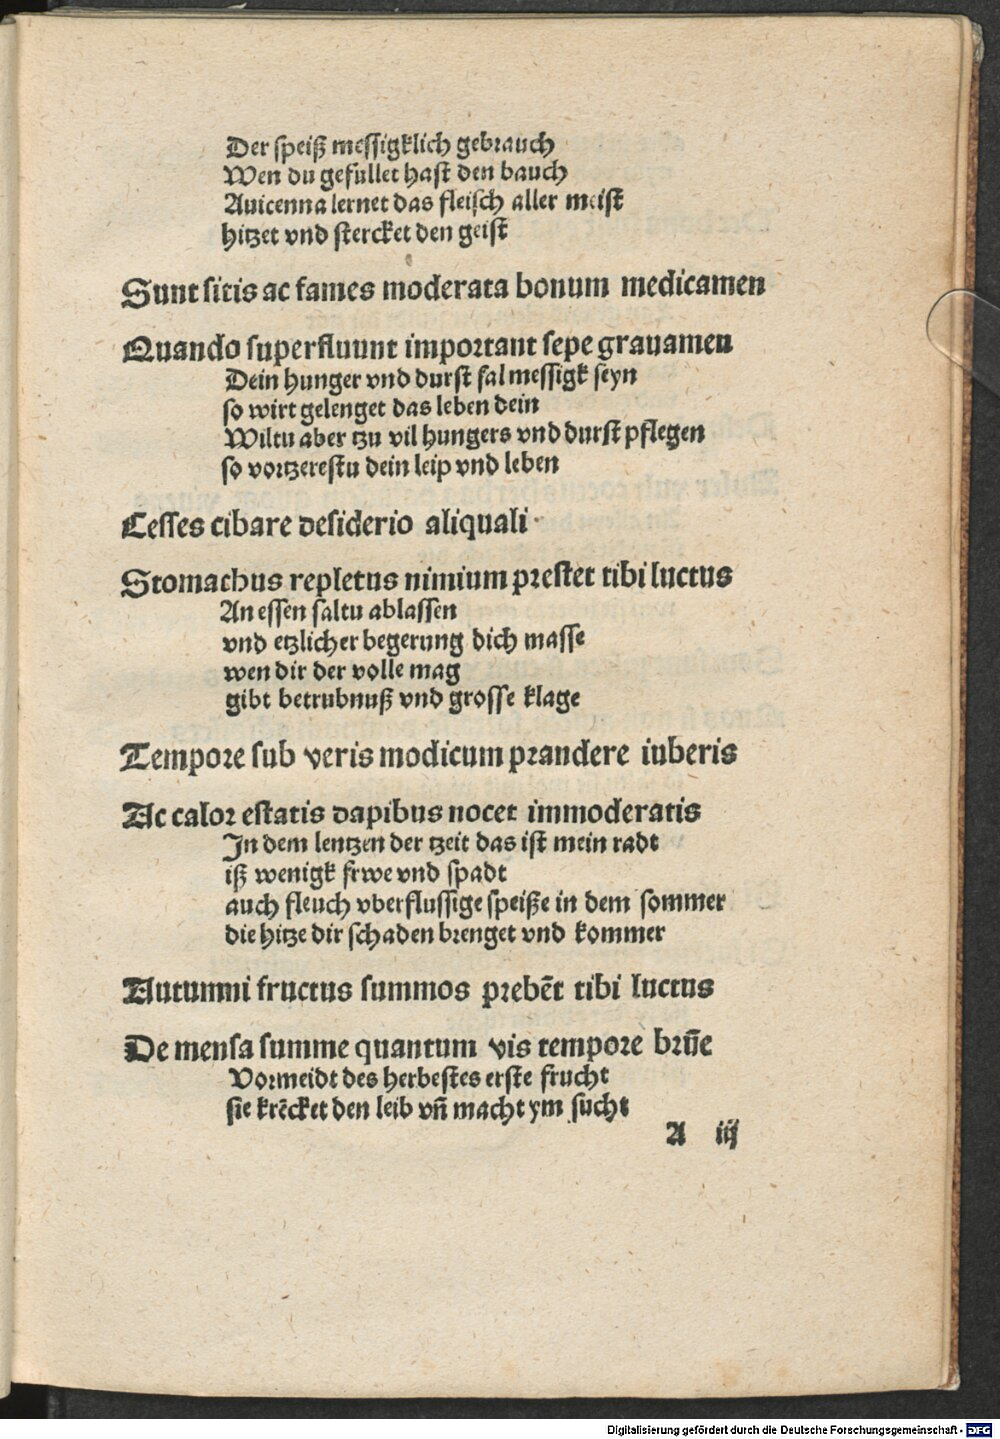 Der speiß messigklich gebrauch
Wen du gefullet hast den bauch
Auicenna lernet das fleisch aller meist
hitzet vnd stercket den geist
Sunt sitis ac fames moderata bonum medicamen
Quando superfluunt important sepe grauamen
Dein hunger vnd durst sal messigk seyn
so wirt gelenget das leben dein
Wiltu aber tzu vil hungers vnd durst pflegen
so vortzerestu dein leip vnd leben
Cesses cibare desiderio aliquali
Stomachus repletus nimium prestet tibi luctus
An essen saltu ablassen
vnd etzlicher begerung dich masse
wen dir der volle mag
gibt betrubnuß vnd grosse klage
Tempore sub veris modicum prandere iuberis
Ac calor estatis dapibus nocet immoderatis
In dem lentzen der tzeit das ist mein radt
iß wenigk frwe vnd spadt
auch fleuch vberflussige speiße in dem sommer
die hitze dir schaden brenget vnd kommer
Autumni fructus summos prebēt tibi luctus
De mensa summe quantum vis tempore brūe
Vormeidt des herbestes erste frucht
sie krēcket den leib vn̄ macht ym sucht
A iij
Digitalisierung gefördert durch die Deutsche Forschungsgemeinschaft - DFG